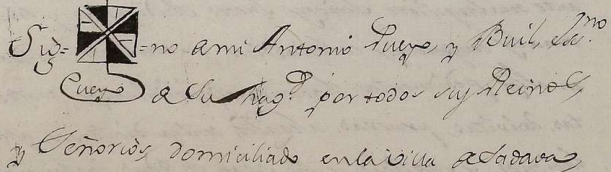 Sig=no de mi Antonio Pueyo, y Buil, Es.no
Pueyo
de Su Mag.d por todos sus Reinos,
y Señorios, domiciliado en la Villa de Sadava,